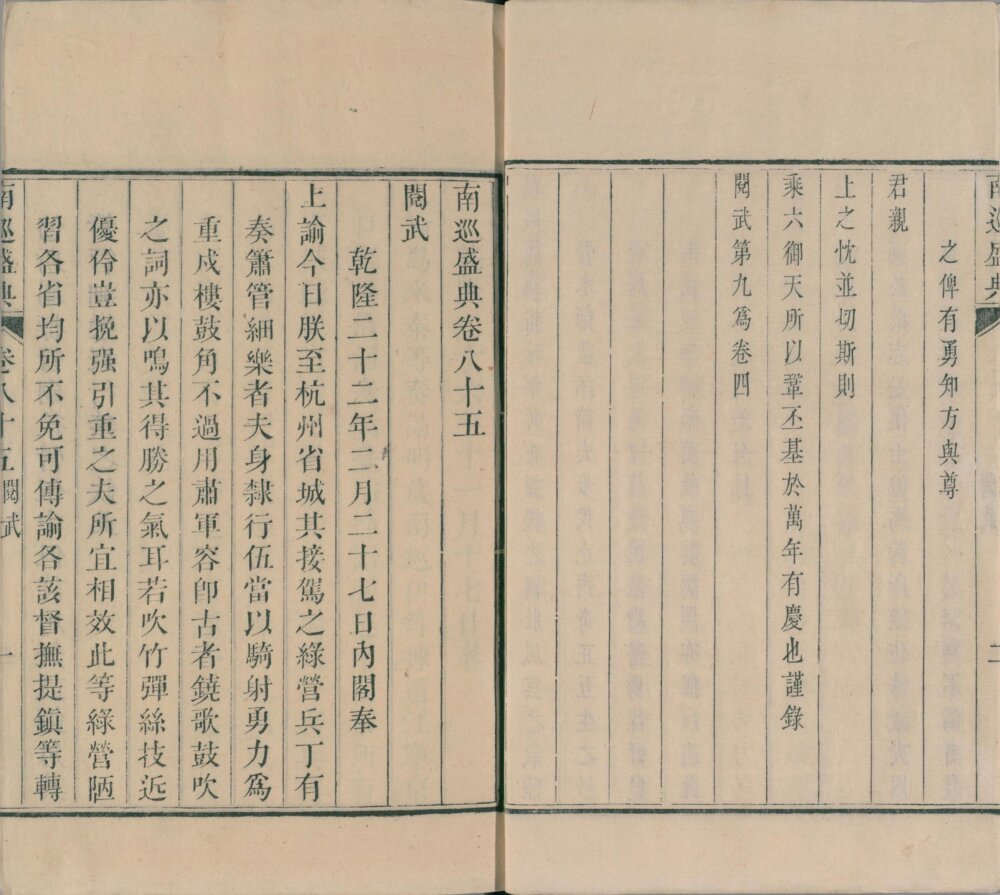 南巡盛典
二
之俾有勇知方與尊
君親
上之忱並切斯則
乘六御天所以鞏丕基於萬年有慶也謹錄
閱武第九爲卷四
南巡盛典卷八十五
閱武
乾隆二十二年二月二十七日內閣奉
上諭今日朕至杭州省城其接駕之綠營兵丁有
奏簫管細樂者夫身隸行伍當以騎射勇力爲
重戍樓鼓角不過用肅軍容卽古者鐃歌鼓吹
之詞亦以鳴其得勝之氣耳若吹竹彈絲技近
優伶豈挽强引重之夫所宜相效此等綠營陋
習各省均所不免可傳諭各該督撫提鎭等轉
南巡盛典 卷八十五 閱武 一